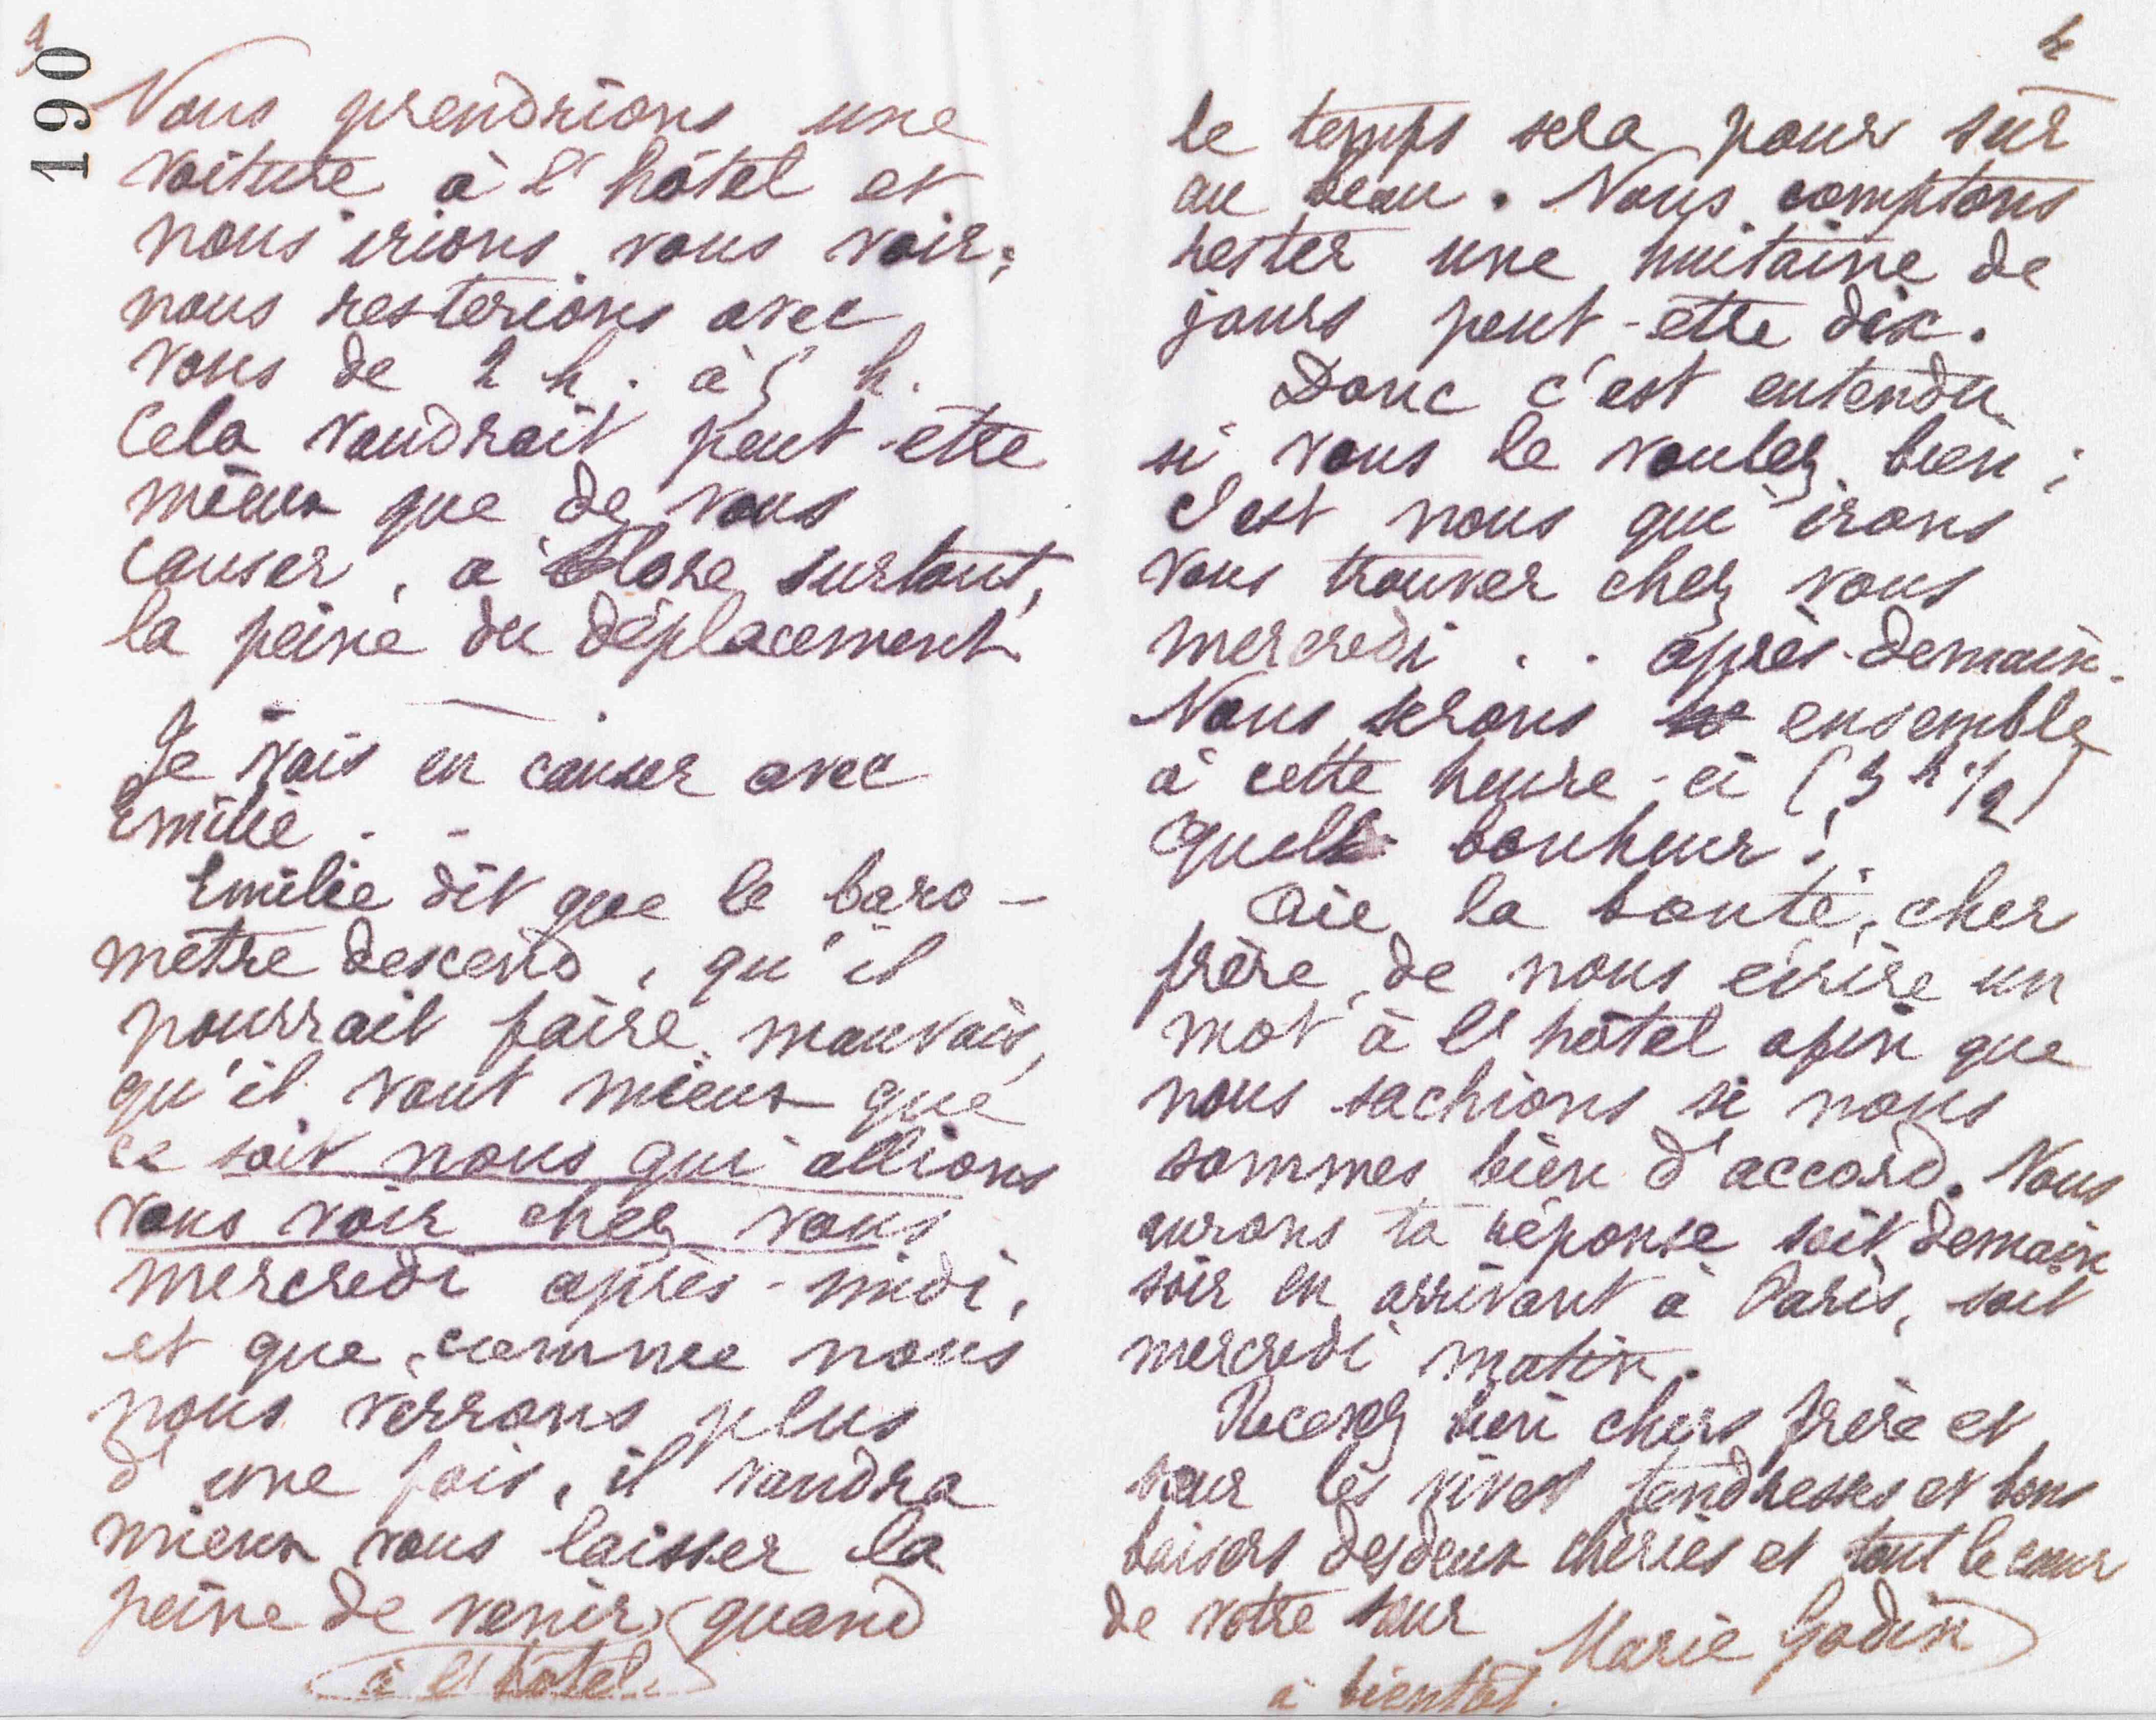 190
Nous prendrions une
voiture à l'hôtel et
nous irions vous voir;
nous resterions avec
vous de 2 h. à 5 h.
Cela vaudrait peut-être
mieux que de vous
causer, à Flore surtout,
la peine du déplacement
Je vais en causer avec
Emilie . .
Emilie dit que le baro-
mètre descend, qu'il
pourrait faire mauvais,
qu'il vaut mieux que
ce soit nous qui allions
vous voir chez vous
mercredi après-midi,
et que, comme nous
nous verrons plus
d'une fois, il vaudra
mieux vous laisser la
peine de venir (quand
à l'hôtel.
4
le temps sera pour sûr
au beau. Nous comptons
rester une huitaine de
jours peut-être dix.
Donc c'est entendu
si vous le voulez bien;
c'est nous qui irons
vous trouver chez vous
mercredi . . après-demain.
Nous serons ensemble
à cette heure-ci (3 h 1/2)
quel bonheur!
Aie la bonté, cher
frère, de nous écrire un
mot à l'hôtel afin que
nous sachions si nous
sommes bien d'accord. Nous
aurons ta réponse soit demain
soir en arrivant à Paris, soit
mercredi matin.
Recevez bien chers frère et
sœur les vives tendresses et bons
baisers des deux chéries et tout le cœur
de votre sœur Marie Godin
à bientôt.